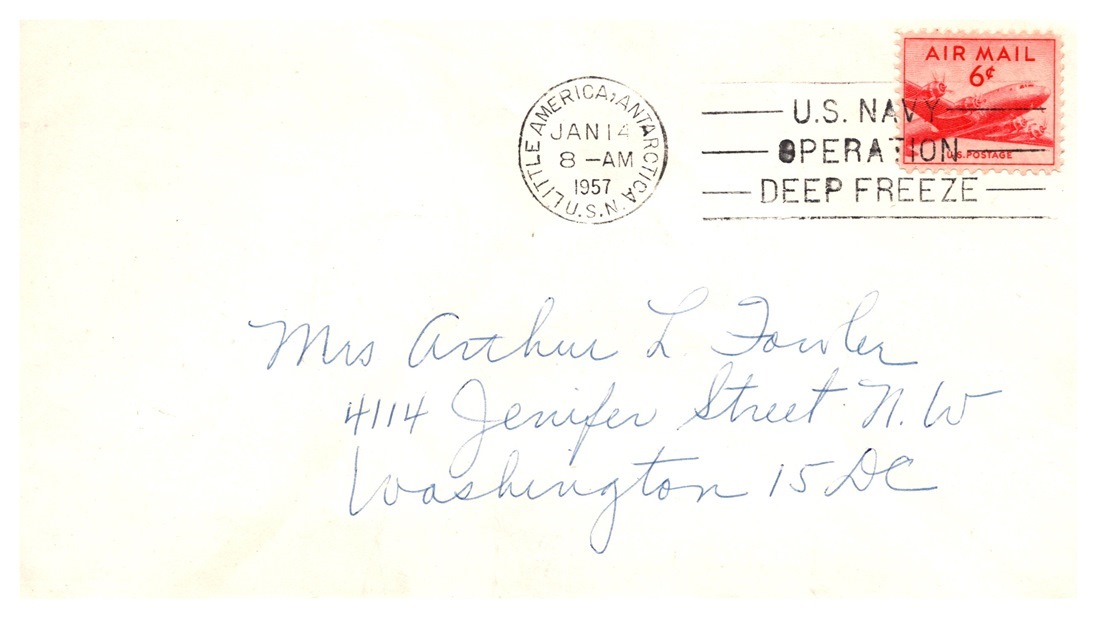 AIR MAIL
6¢
U.S. POSTAGE
LITTLE AMERICA, ANTARCTICA U.S.N.
JAN 14
8 –AM
1957
U.S. NAVY
OPERATION
DEEP FREEZE
Mrs Arthur L. Fowler
4114 Jenifer Street N.W
Washington 15 DC